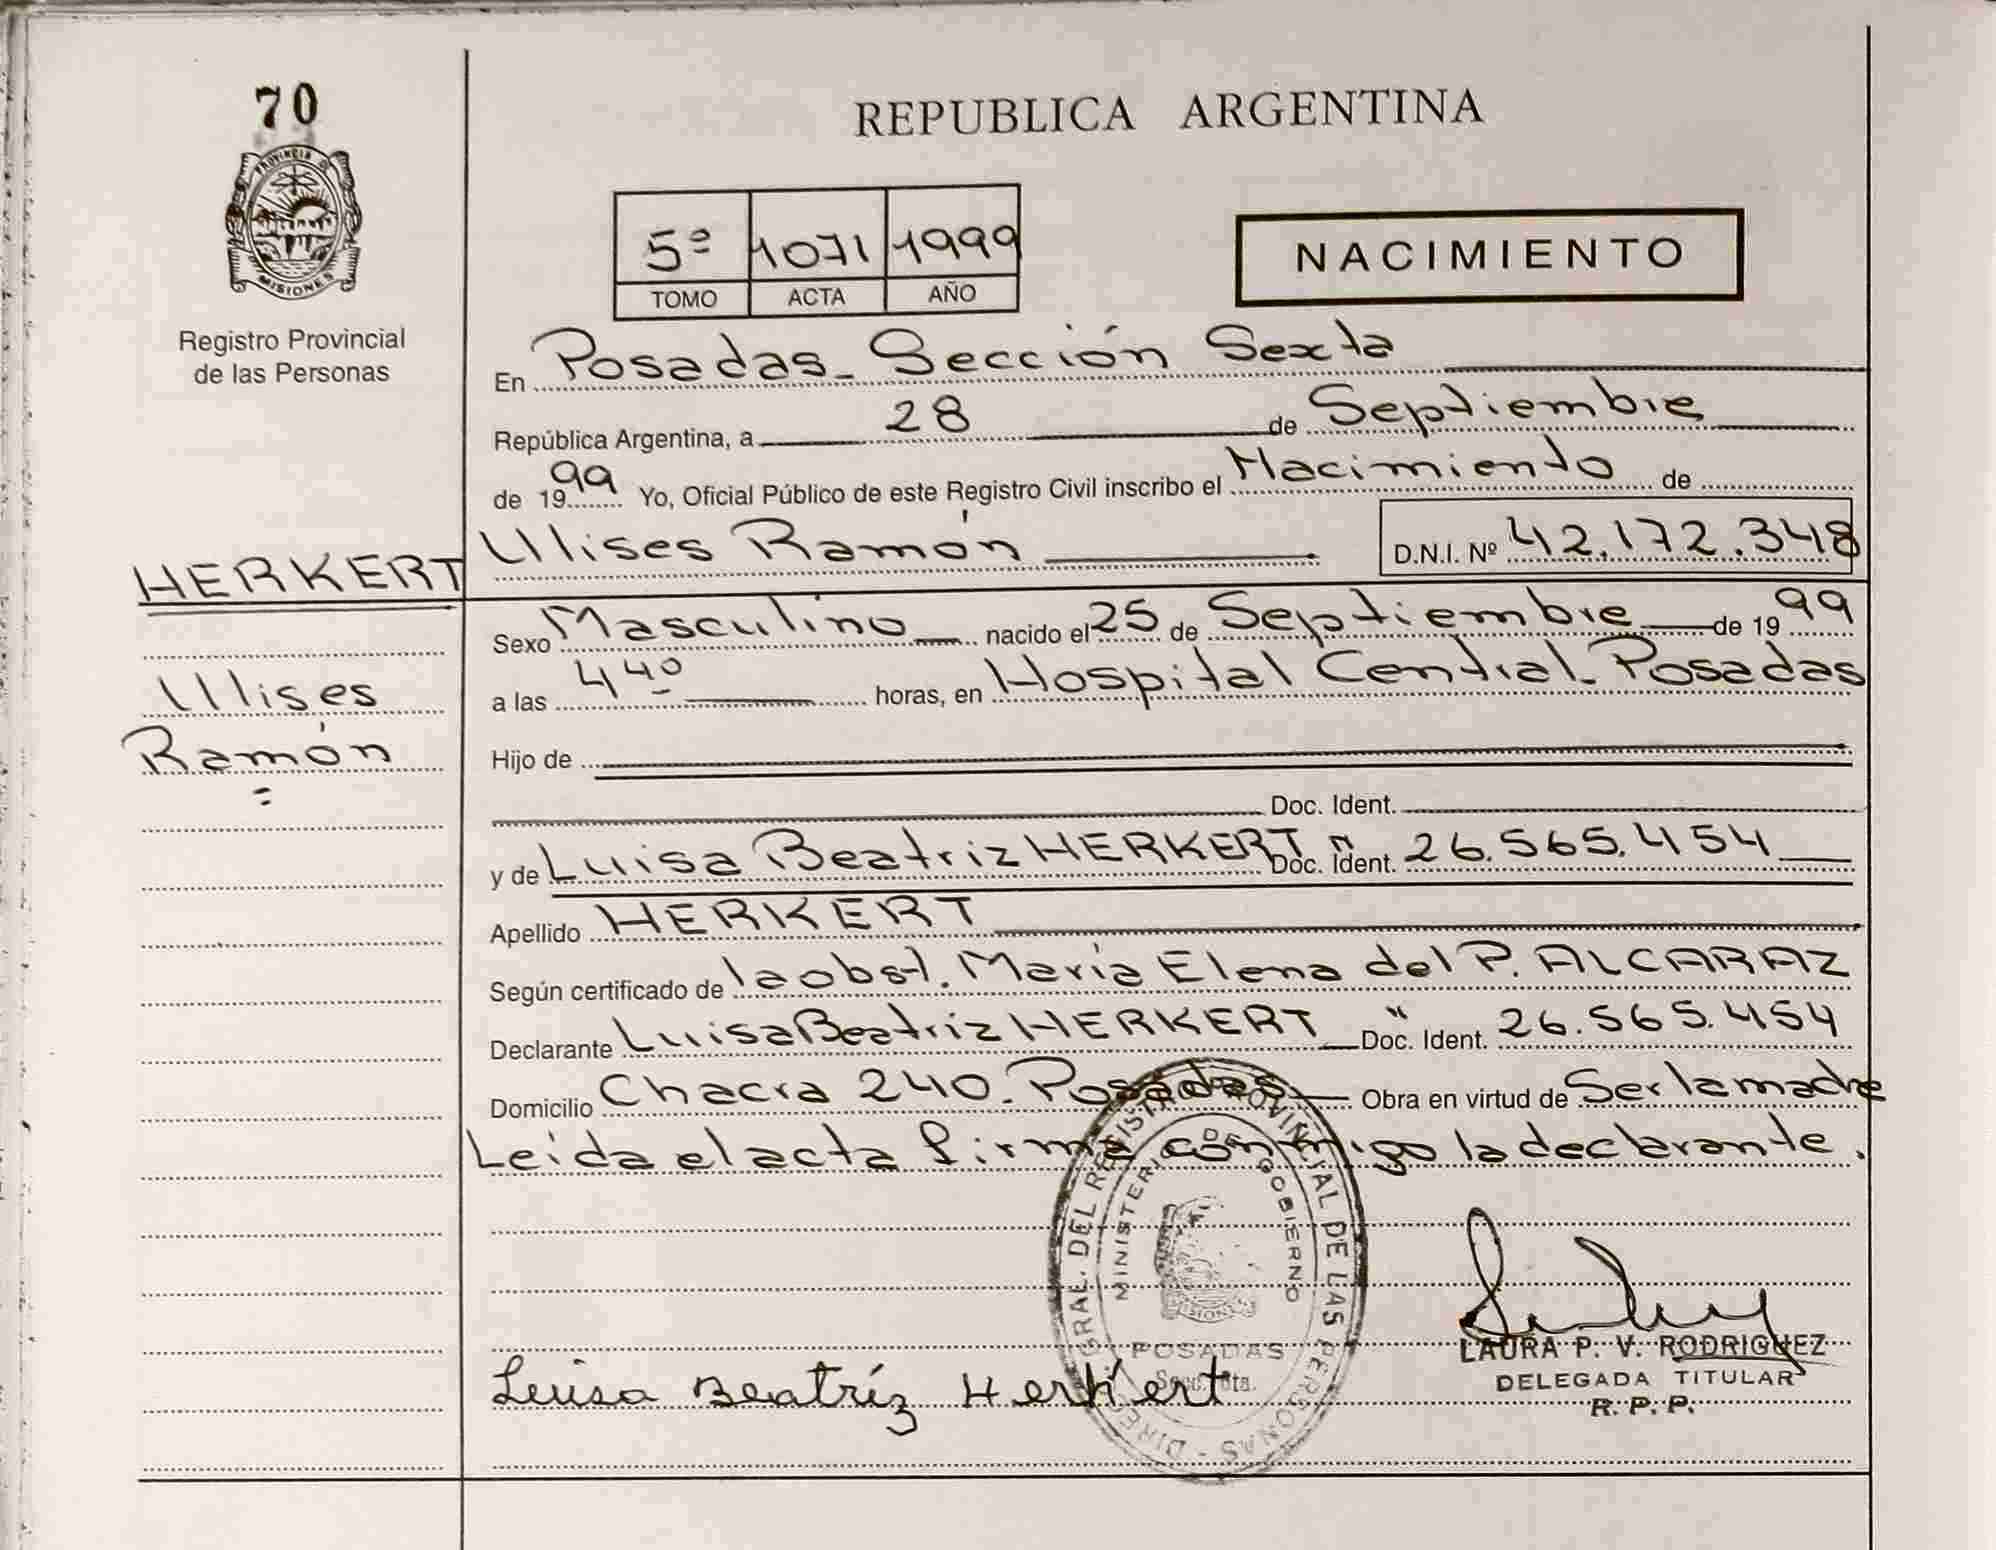 70
PROVINCIA DE
MISIONES
Registro Provincial
de las Personas
REPUBLICA ARGENTINA
5º 1071 1999
TOMO ACTA AÑO
NACIMIENTO
En Posadas - Sección Sexta
República Argentina, a 28 de Septiembre
de 1999 Yo, Oficial Público de este Registro Civil inscribo el Nacimiento de
HERKERT
Ulises Ramón D.N.I. Nº 42.172.348
Ulises
Ramón
Sexo Masculino nacido el 25 de Septiembre de 1999
a las 4 40 horas, en Hospital Central - Posadas
Hijo de
Doc. Ident.
y de Luisa Beatriz HERKERT Doc. Ident. " 26.565.454
Apellido HERKERT
Según certificado de la obst. María Elena del P. ALCARAZ
Declarante Luisa Beatriz HERKERT Doc. Ident. " 26.565.454
Domicilio Chacra 240. Posadas Obra en virtud de Ser la madre
Leida el acta firma conmigo la declarante.
DIREC. GRAL. DEL REGISTRO PROVINCIAL DE LAS PERSONAS
MINISTERIO DE GOBIERNO
MISIONES
POSADAS
LAURA P. V. RODRIGUEZ
DELEGADA TITULAR
R. P. P.
Luisa Beatríz Herkert